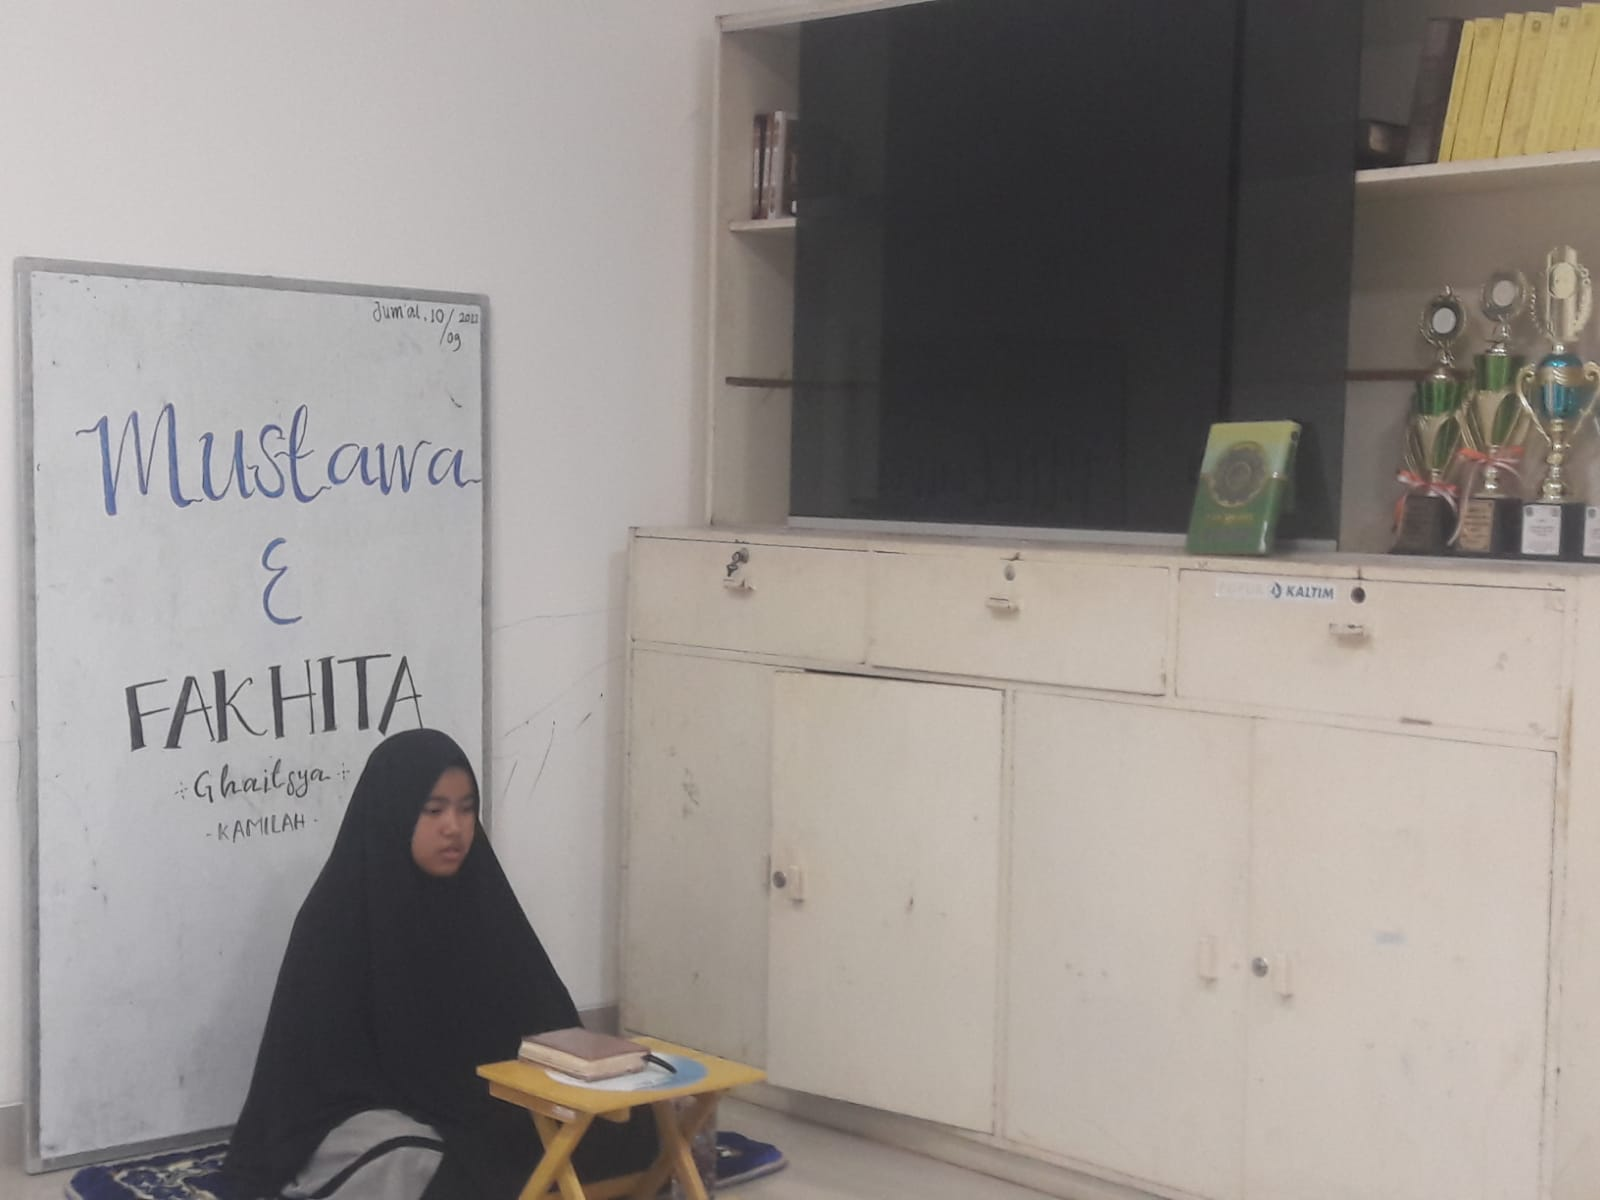 Jum'at, 10/09 2021
Mustawa
٤
FAKHITA
Ghaitsya
- KAMILAH -
PUPUK KALTIM